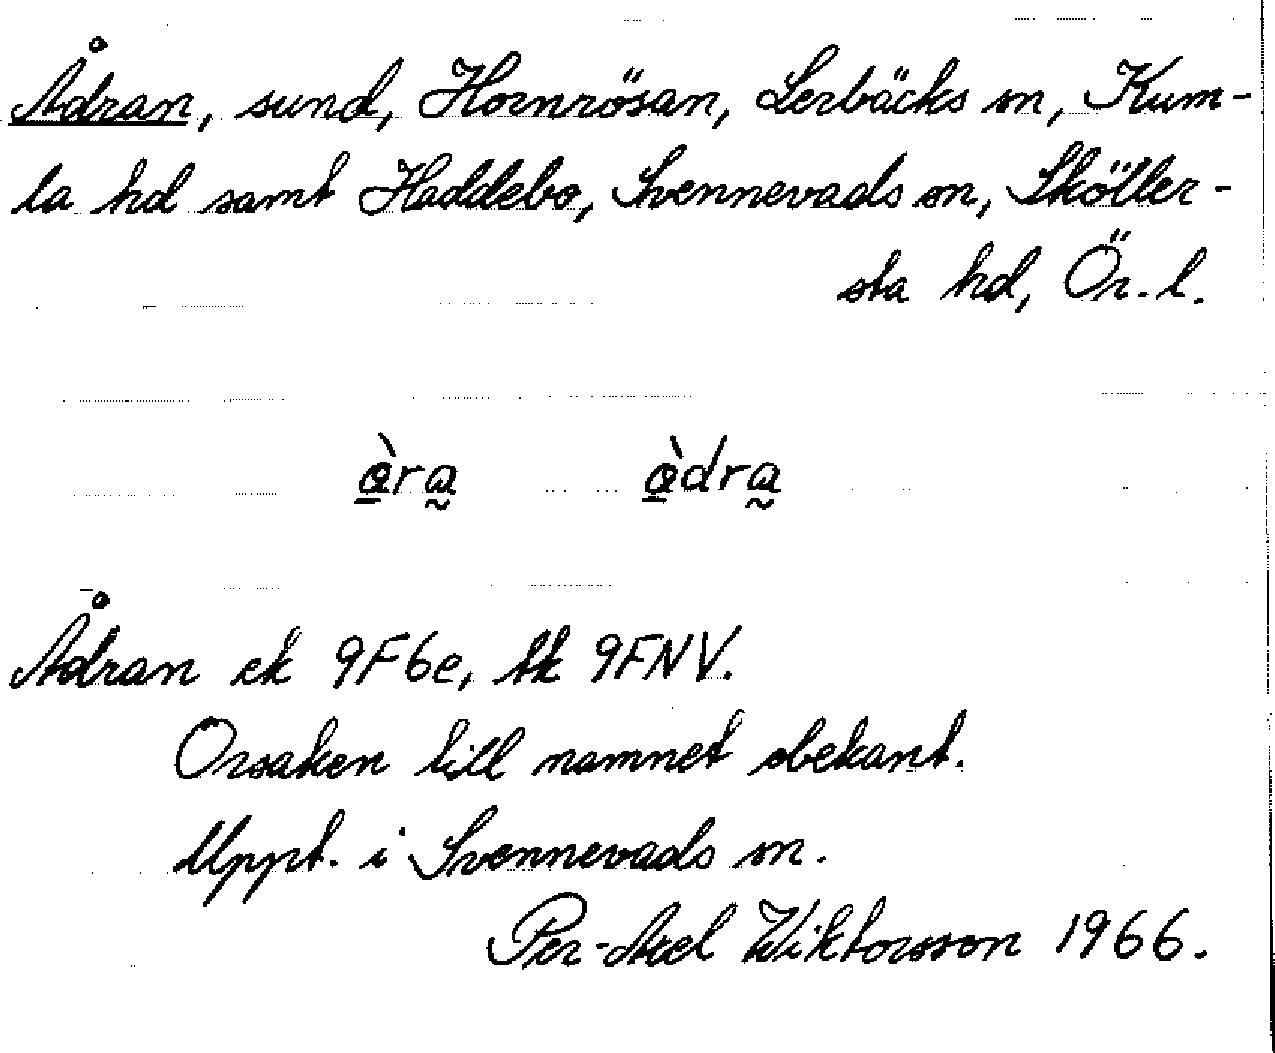 Ådran, sund, Hornrösan, Lerbäcks sn, Kum-
la hd samt Haddebo, Svennevads sn, Sköller-
sta hd, Ör. l.
àra àdra
Ådran ek 9F6e, tk 9FNV.
Orsaken till namnet obekant.
Uppt. i Svennevads sn.
Per-Axel Wiktorsson 1966.